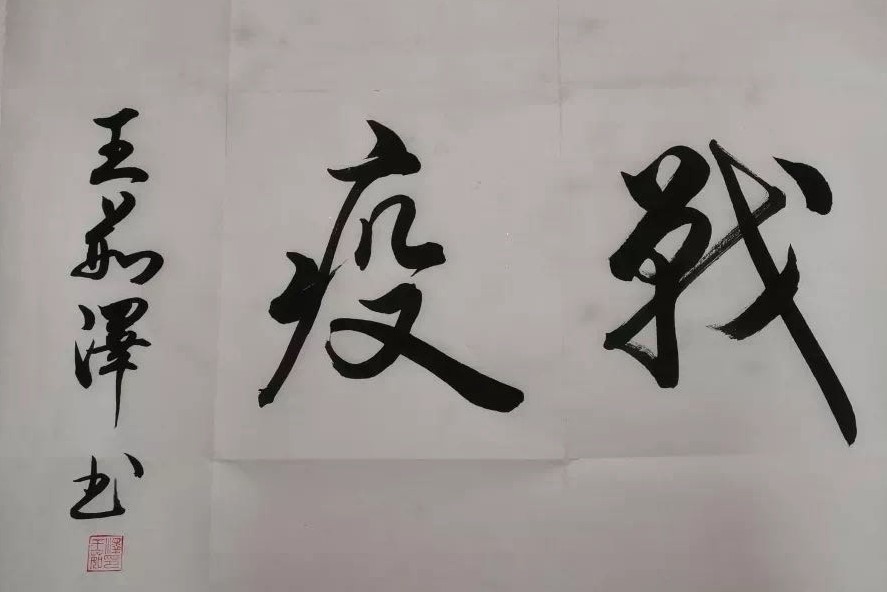 戰疫
王茹澤书